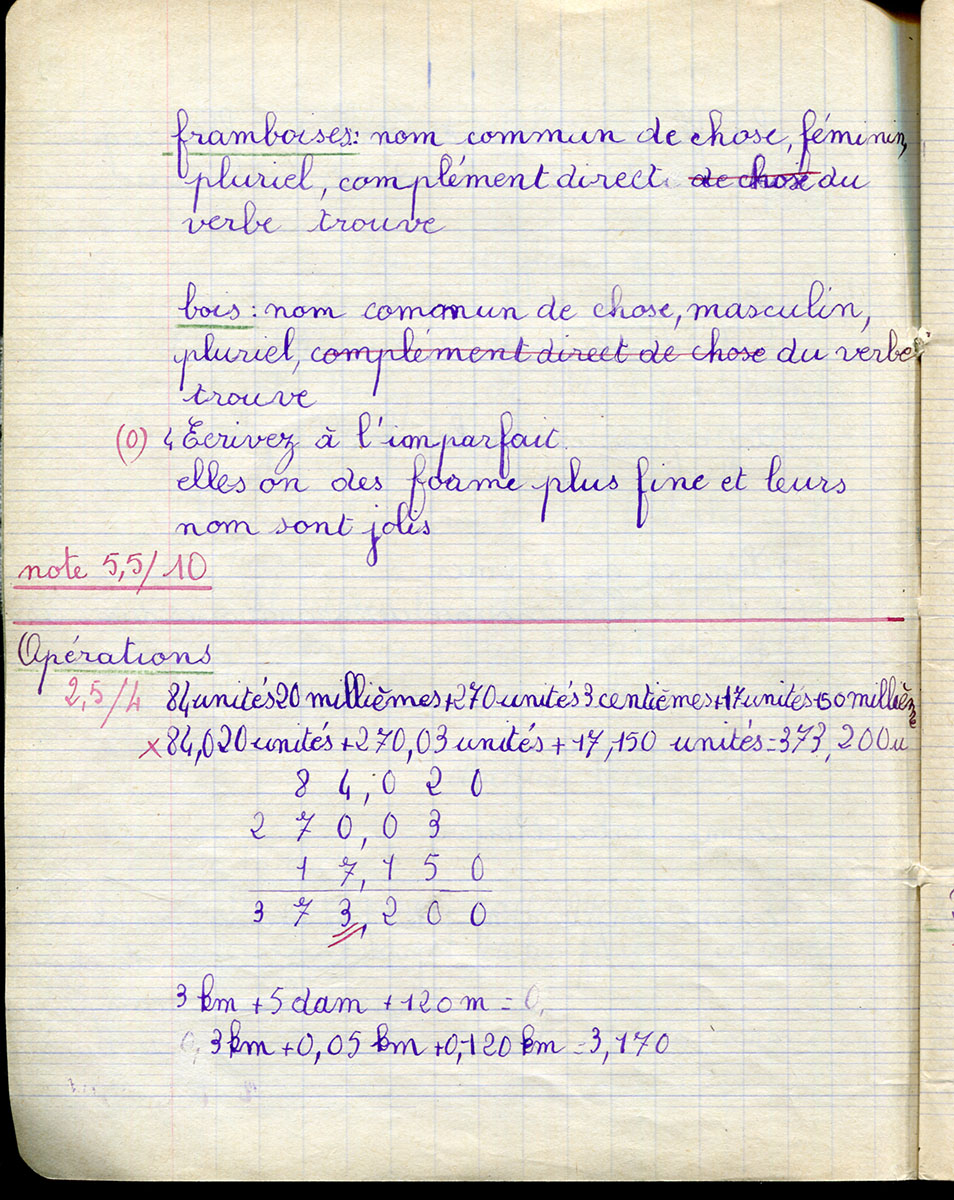 framboises: nom commun de chose, féminin,
pluriel, complément direct de chose du
verbe trouve
bois : nom commun de chose, masculin,
pluriel, complément direct de chose du verbe
trouve
(0) 4 Ecrivez à l'imparfait.
elles on des forme plus fine et leurs
nom sont jolis
note 5,5/10
Opérations
2,5/4 84 unités 20 millièmes + 270 unités 3 centièmes + 17 unités 150 millièm
x 84,020 unités + 270,03 unités + 17,150 unités = 373,200u
8 4,0 2 0
2 7 0,0 3
1 7,1 5 0
3 7 3,2 0 0
3 km + 5 dam + 120 m = 0,
0, 3 km + 0,05 km + 0,120 km = 3,170